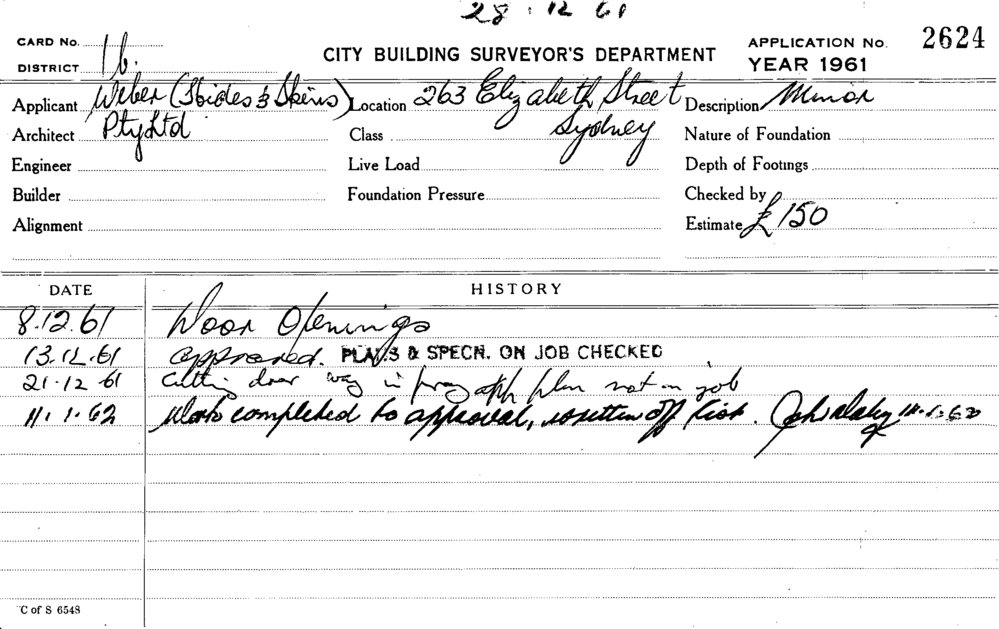 28.12.61
CARD No.
DISTRICT 1b.
CITY BUILDING SURVEYOR'S DEPARTMENT
APPLICATION No. 2624
YEAR 1961
Applicant Weber (Hides & Skins) Location 263 Elizabeth Street Description Minor
Architect Pty Ltd Class Sydney Nature of Foundation
Engineer Live Load Depth of Footings
Builder Foundation Pressure Checked by
Alignment Estimate £150
DATE HISTORY
8.12.61 Door Openings
13.12.61 approved. PLANS & SPECN. ON JOB CHECKED
21.12.61 Cutting door way in plan not on job
11.1.62 Work completed to approval, written off list. 11.1.62
C of S 6548